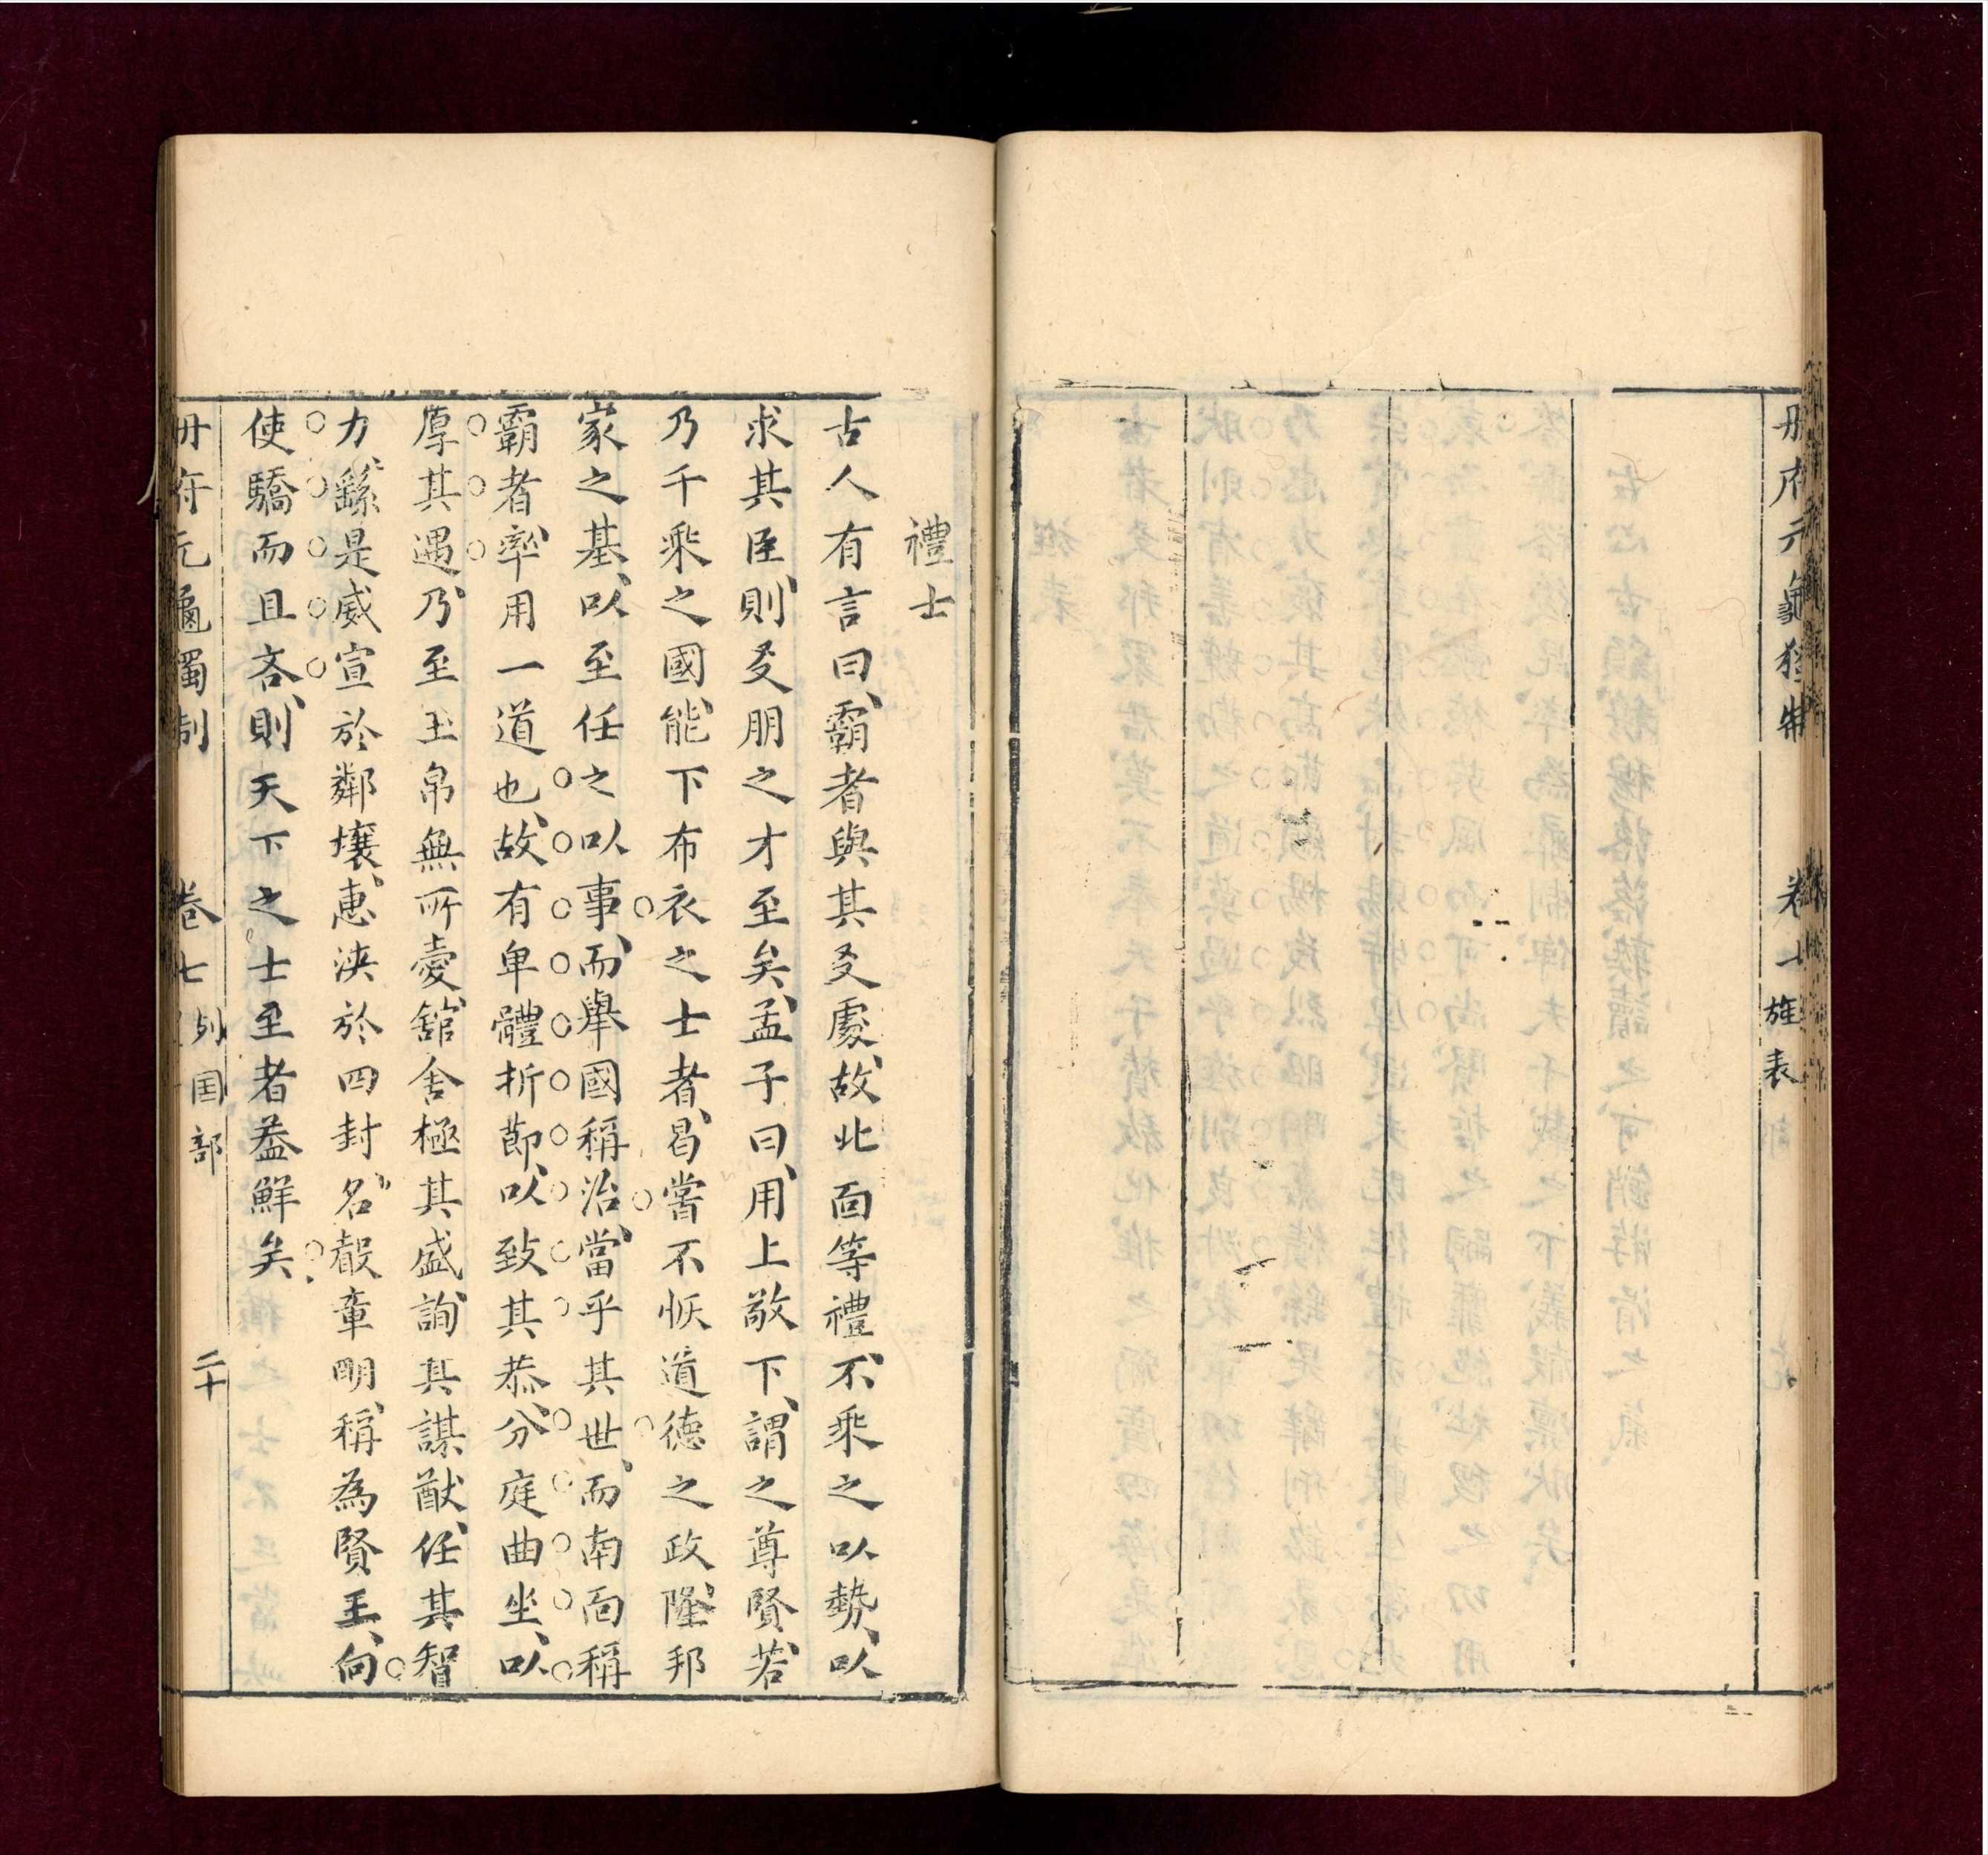 册府元龜獨制
卷七
旌表
禮士
古人有言曰霸者與其叐處故北面等禮不乘之以勢以
求其臣則叐朋之才至矣孟子曰用上敬下謂之尊賢若
乃千乘之國能下布衣之士者曷嘗不恢道德之政隆邦
家之基以至任之以事而舉國稱治當乎其世而南面稱
霸者率用一道也故有卑體折節以致其恭分庭曲坐以
厚其遇乃至玉帛無所愛舘舍極其盛詢其謀猷任其智
力繇是威宣於鄰壤惠浹於四封名嚴章明稱為賢王向
使驕而且吝則天下之士至者葢鮮矣
册府元龜獨制
卷七
列国部
二十